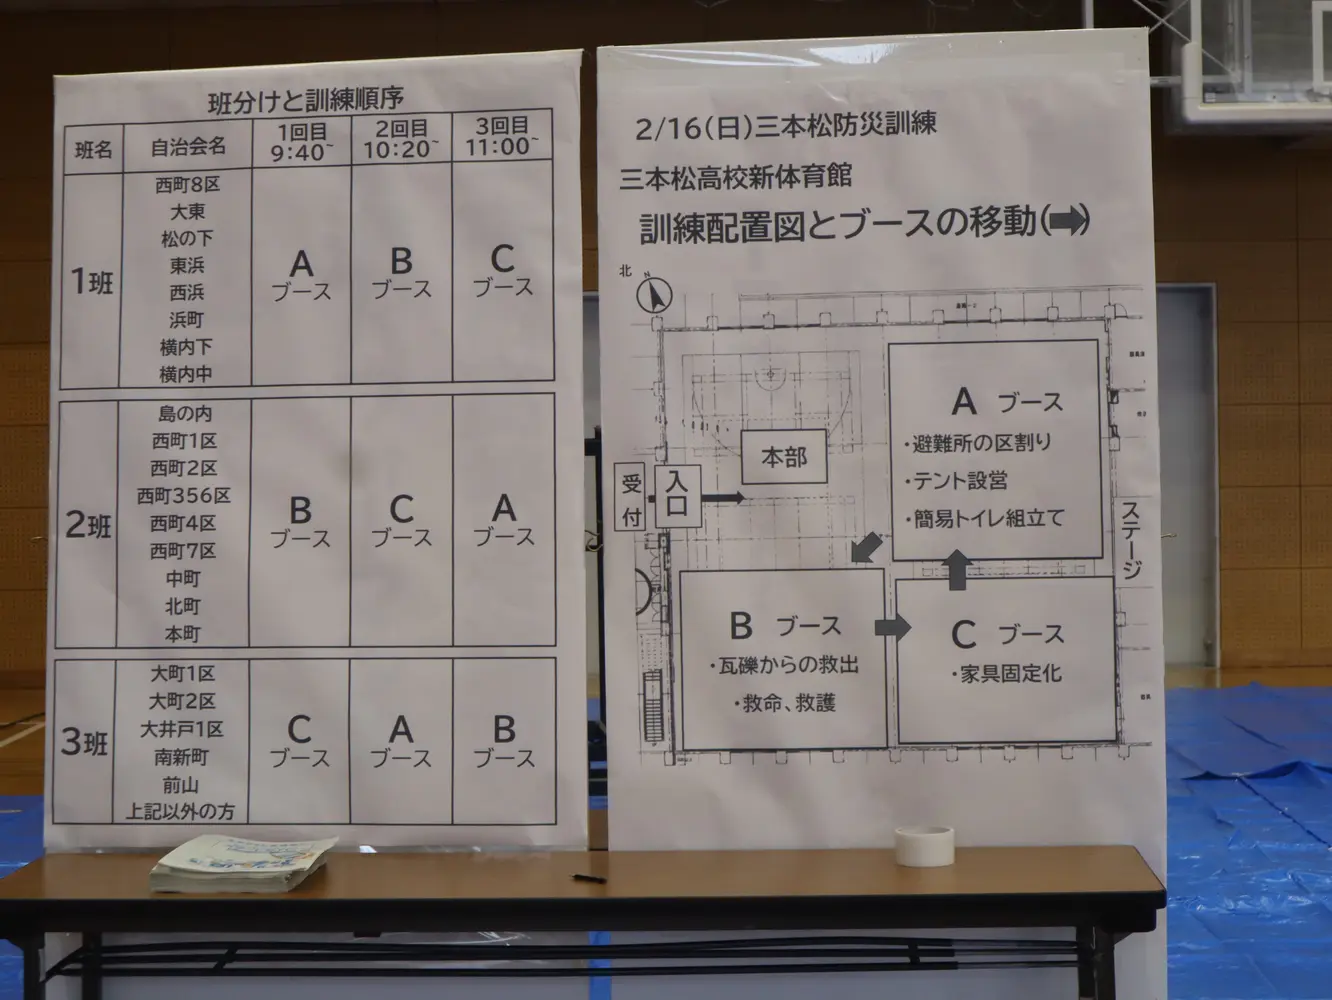 班分けと訓練順序
班名 自治会名 1回目 9:40~ 2回目 10:20~ 3回目 11:00~
1班
西町8区
大東
松の下
東浜
西浜
浜町
横内下
横内中
A ブース
B ブース
C ブース
2班
島の内
西町1区
西町2区
西町356区
西町4区
西町7区
中町
北町
本町
B ブース
C ブース
A ブース
3班
大町1区
大町2区
大井戸1区
南新町
前山
上記以外の方
C ブース
A ブース
B ブース
2/16(日)三本松防災訓練
三本松高校新体育館
訓練配置図とブースの移動(➡)
北 N
本部
受付
入口
A ブース
・避難所の区割り
・テント設営
・簡易トイレ組立て
ステージ
B ブース
・瓦礫からの救出
・救命、救護
C ブース
・家具固定化